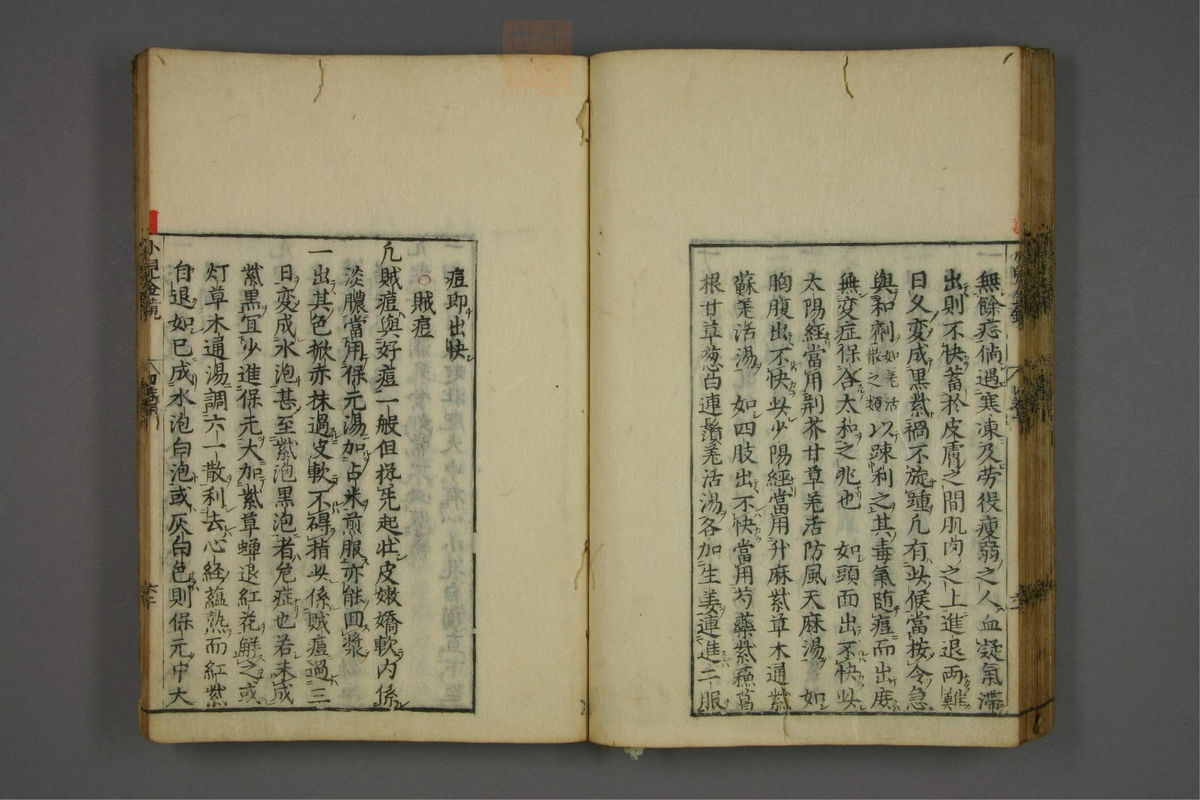 無餘痣倘遇寒凍及労役瘦弱之人血凝氣滞
出則不快蓄於皮膚之間肌肉之上進退両難
日久変成黒紫禍不旋踵凢有此候當按令急
與和劑如羌活散之類以踈利之其毒氣随痘而出庻
無変症保合太和之兆也 如頭面出不快此
太陽經當用荆芥甘草羌活防風天麻湯 如
胸腹出不快此少陽經當用升麻紫草木通紫
蘇羌活湯 如四肢出不快當用芍藥紫蘓葛
根甘草葱白連鬚羌活湯各加生姜連進二服
痘即出快
○賊痘
凢賊痘與好痘一般但提先起壮皮嫩嬌軟内係
淡膿當用保元湯加占米煎服亦能囬漿
一出其色掀赤抹過皮軟不碍指此係賊痘過三
日変成水泡甚至紫泡黒泡者危症也若未成
紫黒宜少進保元大加紫草蝉退紅花觧之或
灯草木通湯調六一散利去心経蘊熱而紅紫
自退如已成水泡白泡或灰白色則保元中大